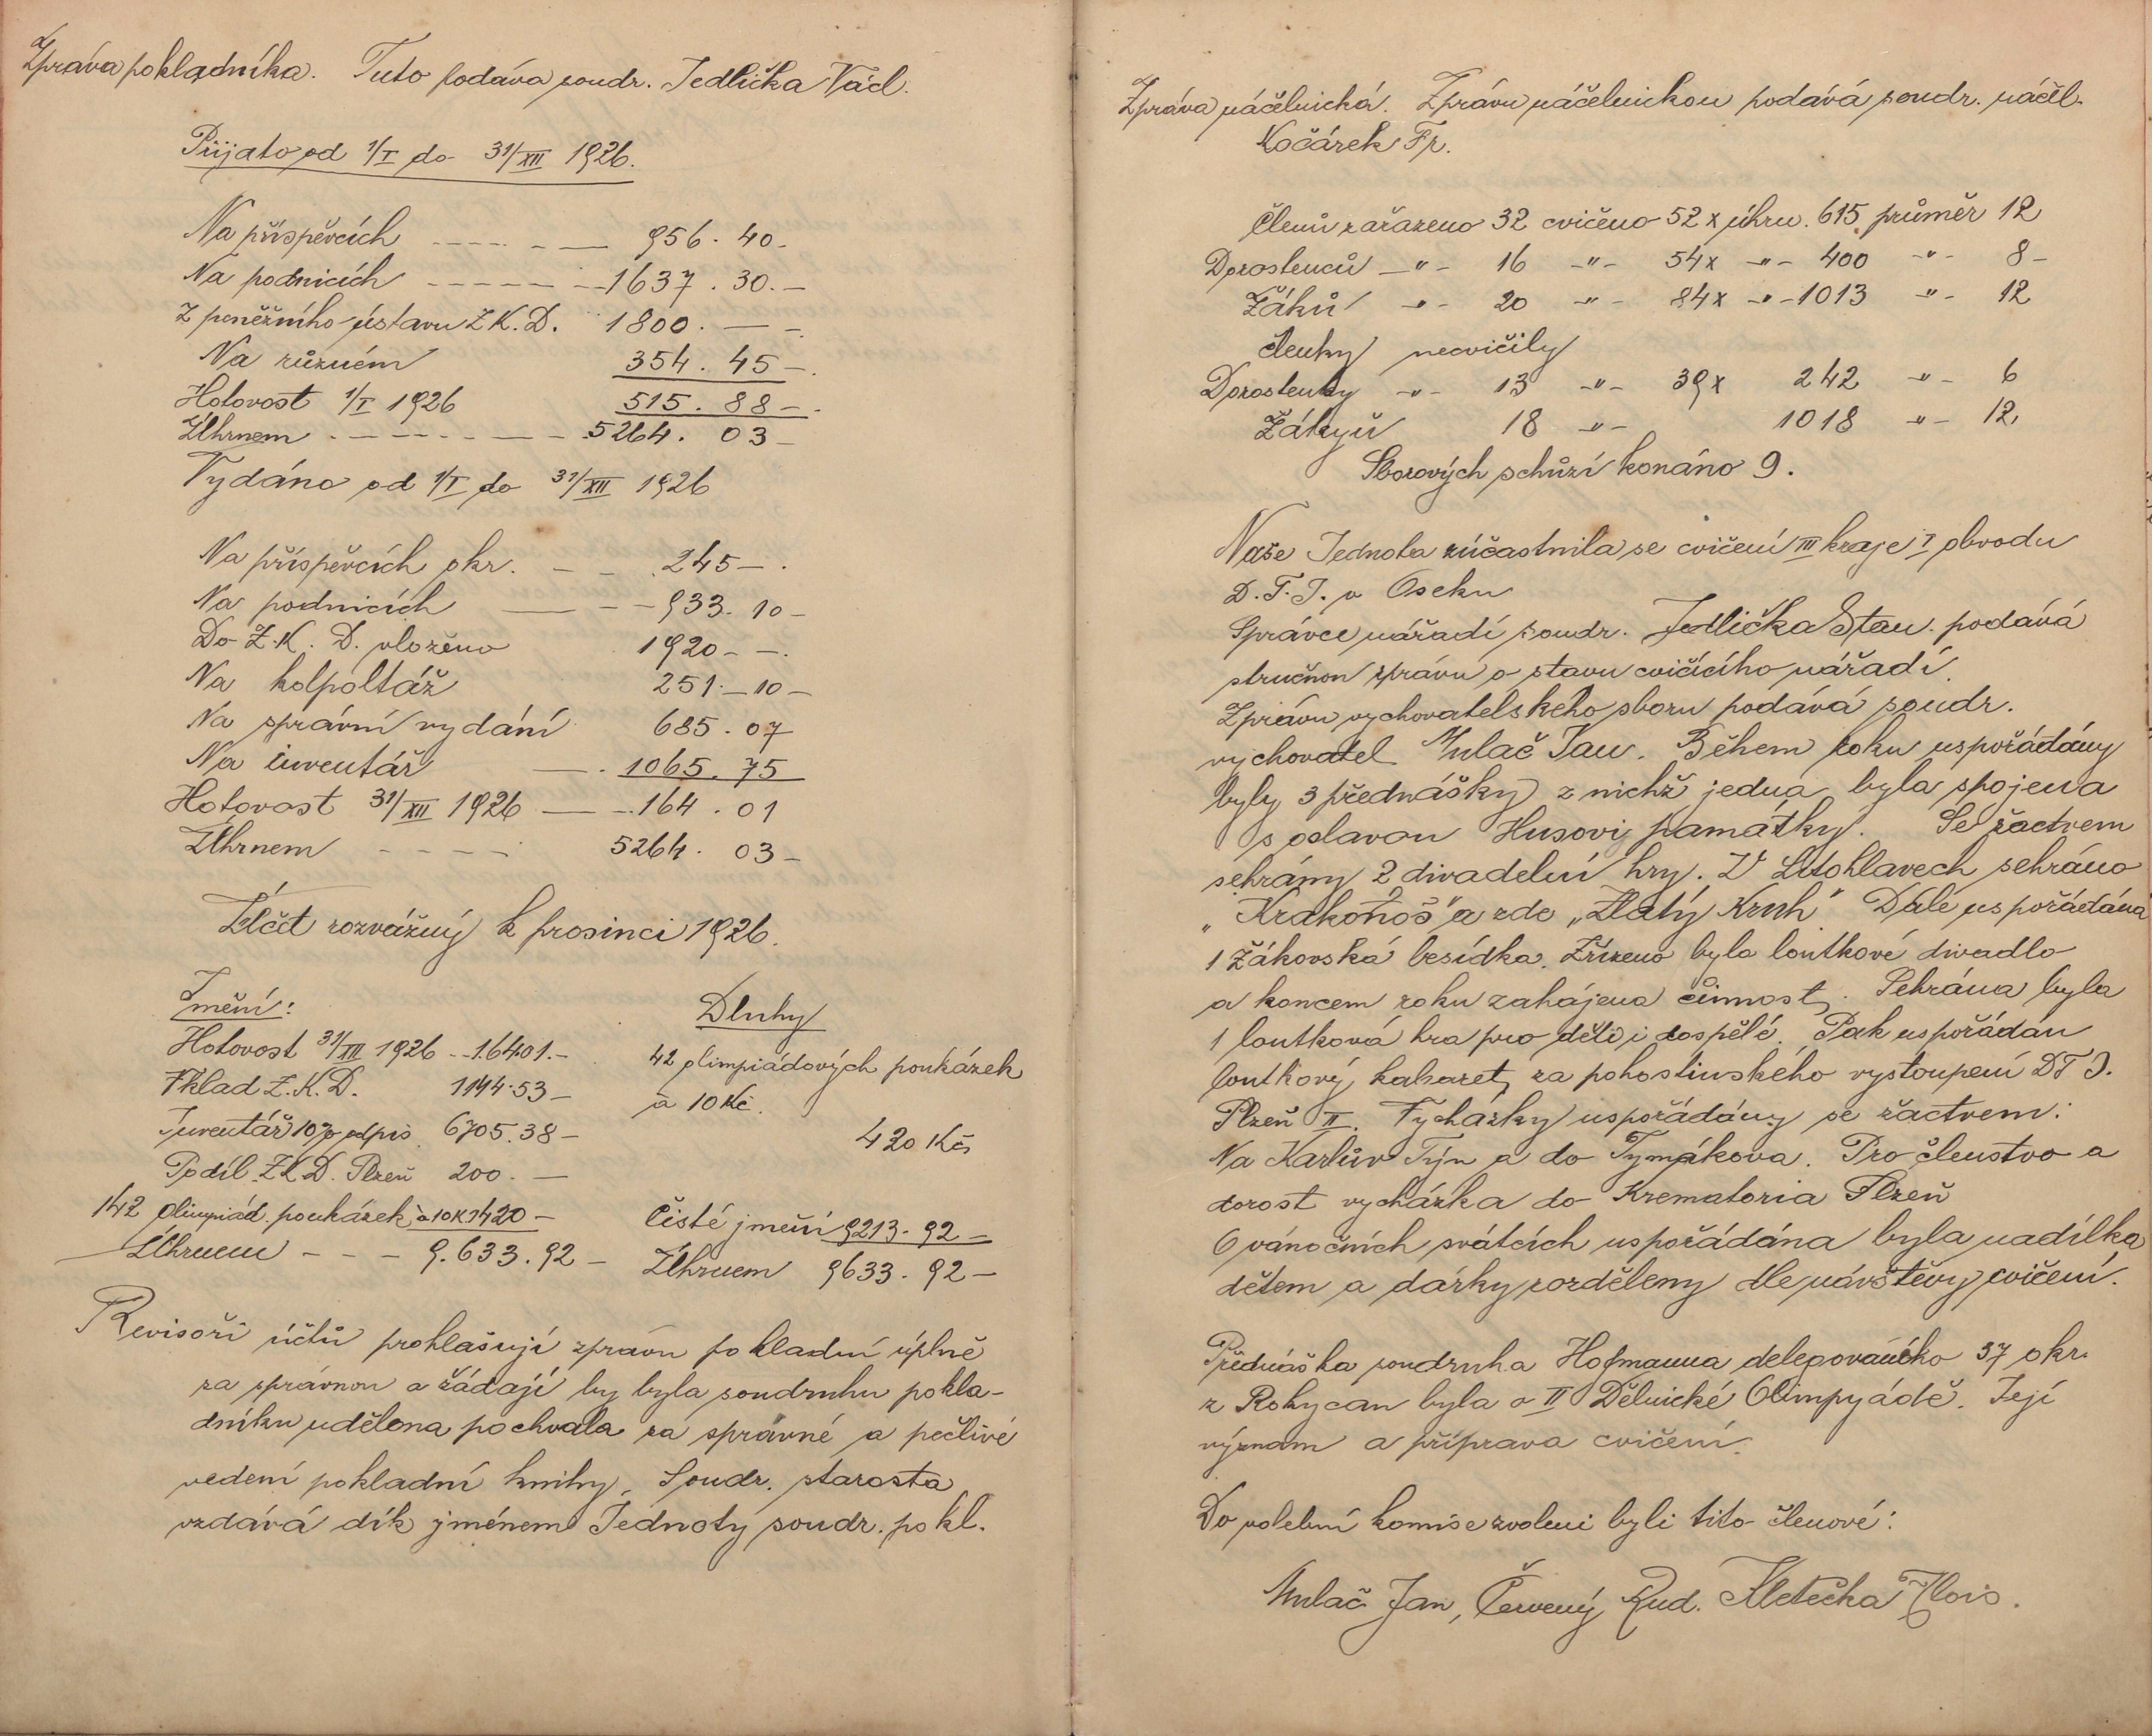 Zpráva pokladníka. Tuto podává soudr. Jedlička Václ.
Přijato od 1/I do 31/XII 1926.
Na příspěvcích ---- - — 956. 40-
Na podnicích ----- —1637. 30.—
Z peněžního ústavu Z K. D. 1800. — -
Na různém 354. 45 —.
Hotovost 1/I 1926 515. 88 —.
Úhrnem . — - — - - — — 5264. 03 —
Vydáno od 1/I do 31/XII 1926
Na příspěvcích okr. - — 245 — .
Na podnicích — - - 933. 10 —
Do Z. K. D. vloženo 1920 - —.
Na kolpoltáž 251. — 10 —
Na správní vydání 685. 07
Na inventář — . 1065. 75
Hotovost 31/XII 1926 — - 164. 01
Úhrnem - - - - 5264. 03 —
Účet rozvážný k prosinci 1926.
Jmění:
Hotovost 31/XII 1926 -- 16401.-
Vklad Z. K. D. 1144.53 —
Inventář 10% odpis 6705.38 —
Podíl Z K D. Plzeň 200. —
142 olimpiád. poukázek à 10K 1420 —
Úhrnem - - - 9.633.92 —
Dluhy
42 olimpiádových poukázek
à 10 Kč.
420 Kč
Čisté jmění 9213. 92 —
Úhrnem 9633. 92 —
Revisoři účtů prohlašují zprávu pokladní úplně
za správnou a žádají by byla soudruhu pokla-
dníku udělena pochvala za správné a pečlivé
vedení pokladní knihy. Soudr. starosta
vzdává dík jménem Jednoty soudr. pokl.
Zpráva náčelnická. Zprávu náčelnickou podává soudr. náčel.
Kočárek Fr.
Členů zařazeno 32 cvičeno 52 x úhrn. 615 průměr 12
Dorostenců —"- 16 -"- 54x -"- 400 -"- 8 —
Žáků -"- 20 -"- 84x -"- 1013 -"- 12
členky necvičily
Dorostenky -"- 13 -"- 39x 242 -"- 6
Žákyň 18 -"- 1018 -"- 12
Sborových schůzí konáno 9.
Naše Jednota zúčastnila se cvičení III kraje I obvodu
D. T. J. v Oseku
Správce nářadí soudr. Jedlička Stan. podává
stručnou zprávu o stavu cvičícího nářadí.
Zprávu vychovatelského sboru podává soudr.
vychovatel Mulač Jan. Během roku uspořádány
byly 3 přednášky z nichž jedna byla spojena
s oslavou Husovi památky. Se žactvem
sehrány 2 divadelní hry. V Litohlavech sehráno
„Krakonoš" a zde „Zlatý Kruh" Dále uspořádána
1 žákovská besídka. Zřízeno bylo loutkové divadlo
a koncem roku zahájena činnost. Sehrána byla
1 loutková hra pro děti i dospělé. Pak uspořádán
loutkový kabaret za pohostinského vystoupení DTJ.
Plzeň II. Vycházky uspořádány se žactvem:
Na Karlův Týn a do Tymákova. Pro členstvo a
dorost vycházka do Krematoria Plzeň
O vánočních svátcích uspořádána byla nadílka
dětem a dárky rozděleny dle návštěvy cvičení.
Přednáška soudruha Hofmanna delegovaného 37 okr.
z Rokycan byla o II Dělnické Olimpyádě. Její
význam a příprava cvičení.
Do volební komise zvoleni byli tito členové:
Mulač Jan, Červený Rud. Kletečka Alois.